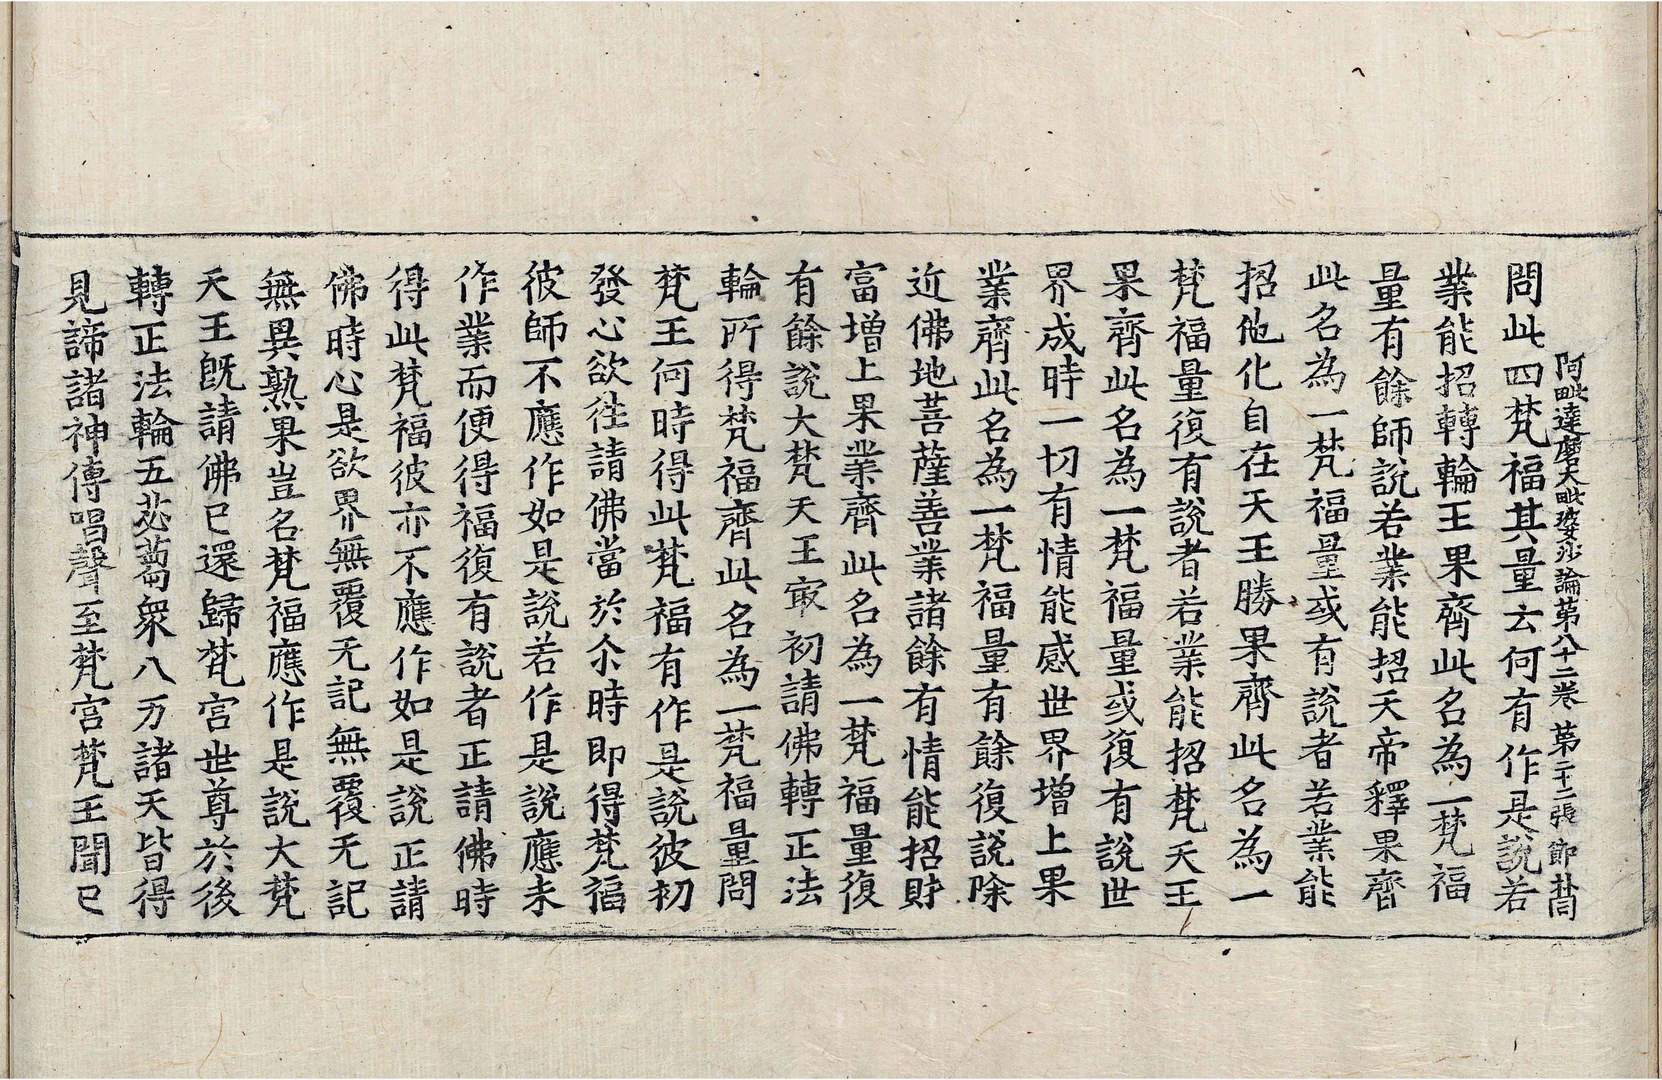 阿毗達磨大毗婆沙論第八十二卷 第二十二張 節
問此四梵福其量云何有作是說若
業能招轉輪王果齊此名為一梵福
量有餘師說若業能招天帝釋果齊
此名為一梵福量或有說者若業能
招他化自在天王勝果齊此名為一
梵福量復有說者若業能招梵天王
果齊此名為一梵福量或復有說世
界成時一切有情能感世界增上果
業齊此名為一梵福量有餘復說除
近佛地菩薩善業諸餘有情能招財
富增上果業齊此名為一梵福量復
有餘說大梵天王㝡初請佛轉正法
輪所得梵福齊此名為一梵福量問
梵王何時得此梵福有作是說彼初
發心欲往請佛當於尒時即得梵福
彼師不應作如是說若作是說應未
作業而便得福復有說者正請佛時
得此梵福彼亦不應作如是說正請
佛時心是欲界無覆无記無覆无記
無異熟果豈名梵福應作是說大梵
天王旣請佛已還歸梵宮世尊於後
轉正法輪五苾蒭衆八万諸天皆得
見諦諸神傳唱聲至梵宮梵王聞已